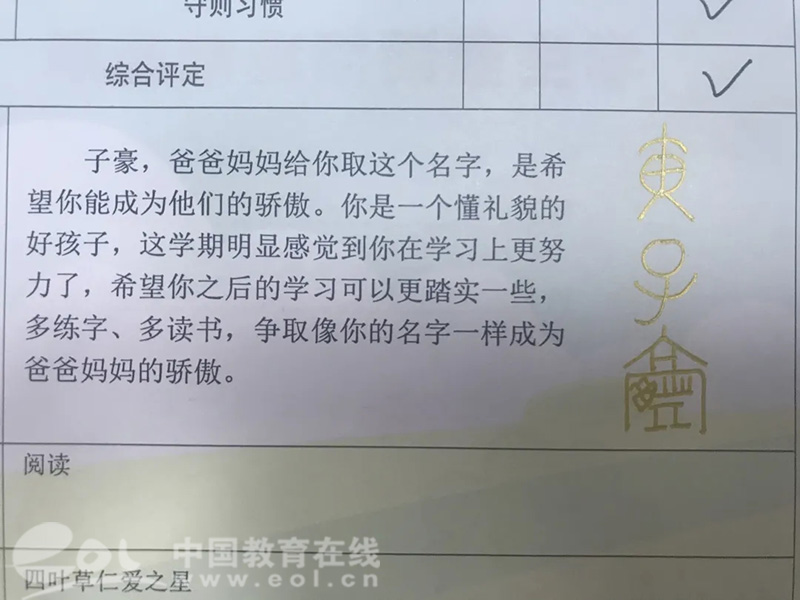 守则习惯
综合评定
子豪，爸爸妈妈给你取这个名字，是希
望你能成为他们的骄傲。你是一个懂礼貌的
好孩子，这学期明显感觉到你在学习上更努
力了，希望你之后的学习可以更踏实一些，
多练字、多读书，争取像你的名字一样成为
爸爸妈妈的骄傲。
子
阅读
四叶草仁爱之星
eol 中国教育在线
www.eol.cn